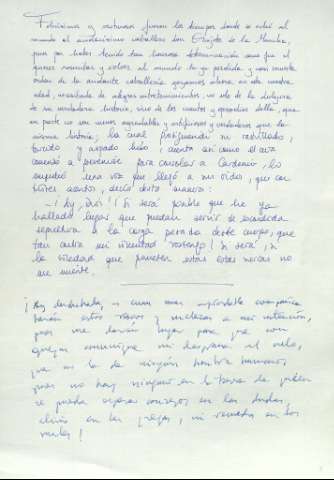 Felicísimos y venturosos fueron los tiempos donde se echó al
mundo el audacísimo caballero don Quijote de la Mancha,
pues por haber tenido tan honrosa determinación como fue el
querer resucitar y volver al mundo la ya perdida y casi muerta
orden de la andante caballería gozamos ahora en esta nuestra
edad, necesitada de alegres entretenimientos, no sólo de la dulzura
de su verdadera historia, sino de los cuentos y episodios della, que
en parte no son menos agradables y artificiosos y verdaderos que la
misma historia; la cual prosiguiendo su rastrillado,
torcido y aspado hilo, cuenta así como el cura
comenzó a prevenirse para consolar a Cardenio, lo
impidió una voz que llegó a sus oídos, que con
tristes acentos, decía desta manera:
- ¡Ay, Dios! ¡Si será posible que he ya
hallado lugar que puedan servir de escondida
sepultura a la carga pesada deste cuerpo, que
tan contra mi voluntad sostengo! Sí será, si
la soledad que prometen estas sierras no
me miente.
¡Ay, desdichada, y cuán más agradable compañía
harán estos riscos y malezas a mi intención,
pues me darán lugar para que con
quejas comunique mi desgracia al cielo,
que no la de ningún hombre humano,
pues no hay ninguno en la tierra de quien
se pueda esperar consejo en las dudas,
alivio en las quejas, ni remedio en los
males!